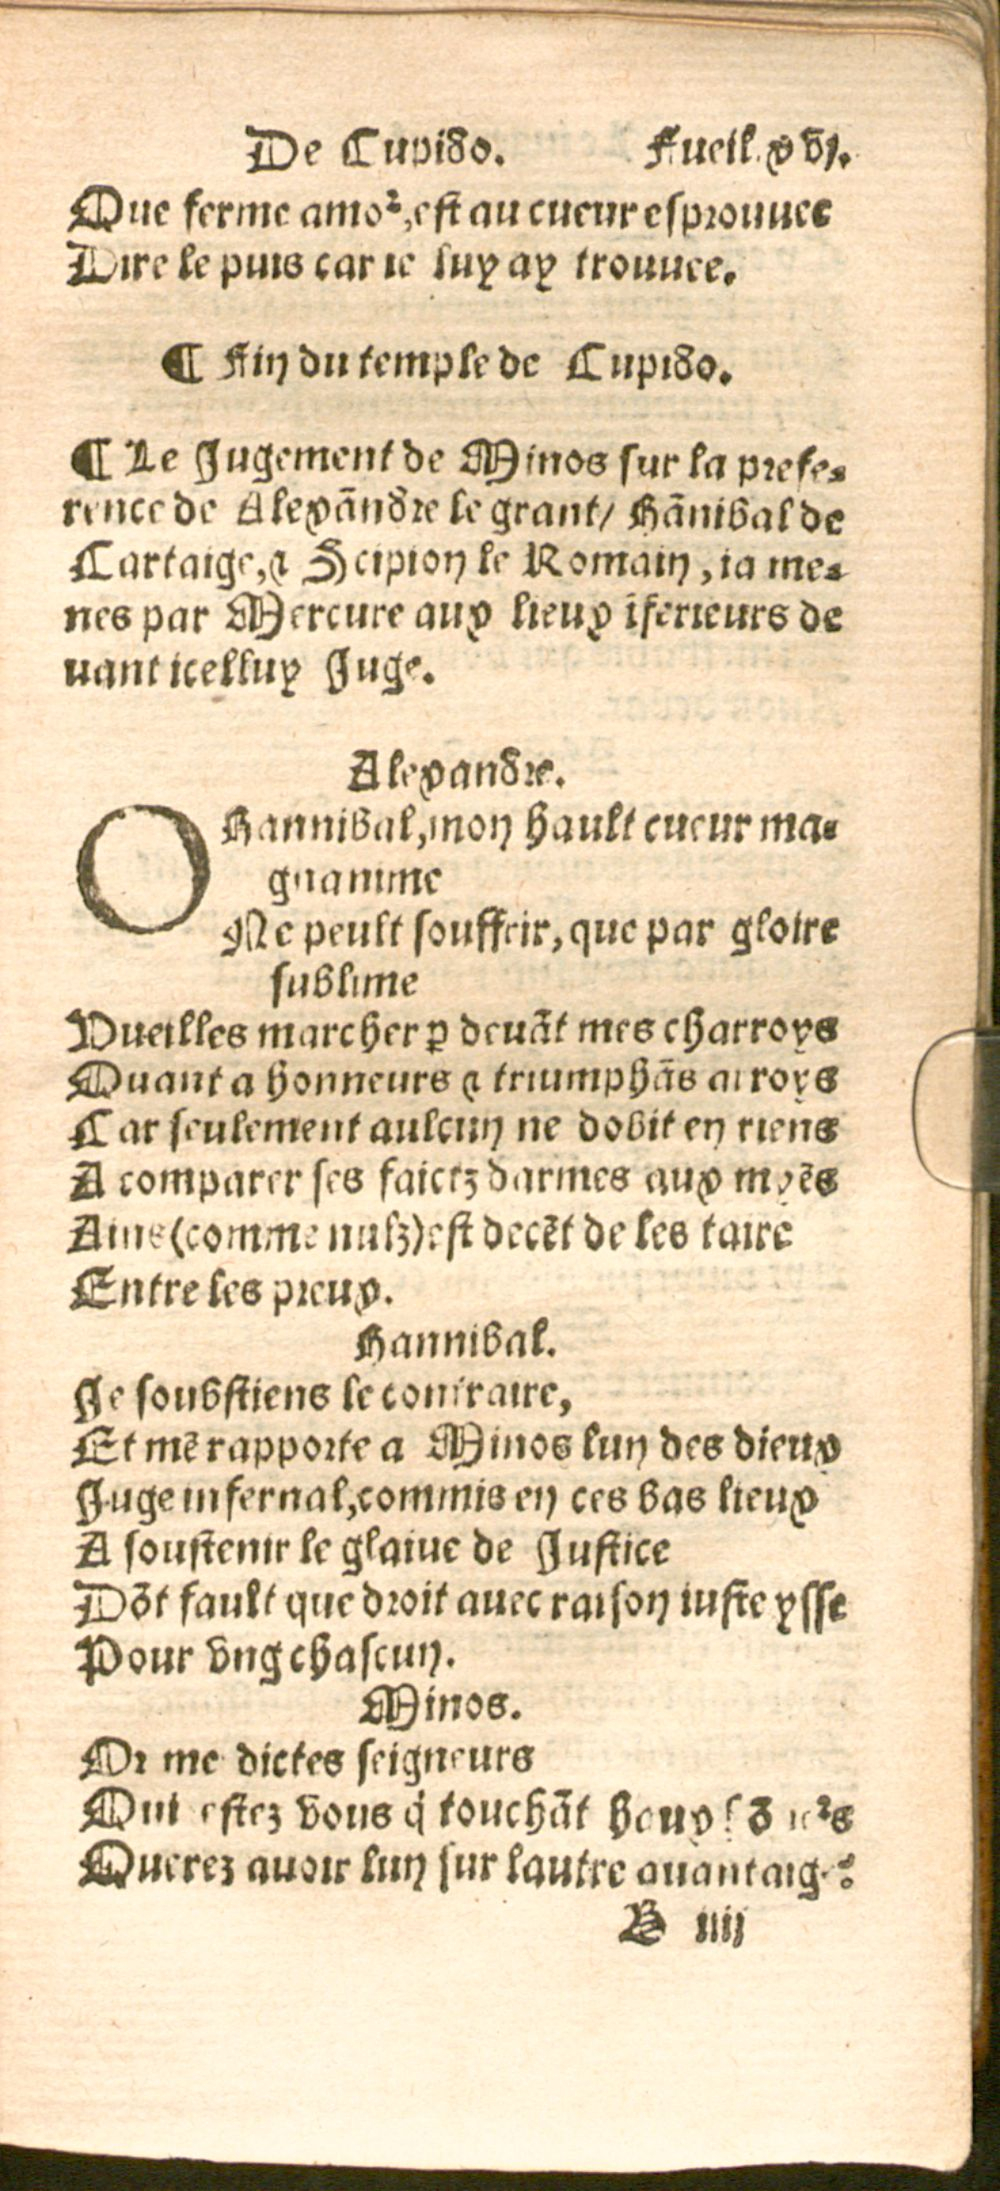 De Cupido. Fueil. xvj.
Que ferme amoꝛ, est au cueur esprouuee
Dire le puis car ie luy ay trouuee.
¶ Fin du temple de Cupido.
¶ Le Jugement de Minos sur la prefe-
rence de Alexãndre le grant/ Hãnibal de
Cartaige, ⁊ Scipion le Romain, ia me-
nes par Mercure aux lieux ĩferieurs de
uant icelluy Juge.
Alexandre.
O Hannibal, mon hault cueur ma-
gnanime
Ne peult souffrir, que par gloire
sublime
Vueilles marcher ꝑ deuãt mes charroys
Quant a honneurs ⁊ triumphãs arroys
Car seulement aulcun ne dobit en riens
A comparer ses faictz darmes aux myẽs
Ains (comme nulz) est decẽt de les taire
Entre les preux.
Hannibal.
Je soubstiens le contraire,
Et mẽ rapporte a Minos lun des dieux
Juge infernal, commis en ces bas lieux
A soustenir le glaiue de Justice
Dõt fault que droit auec raison iuste ysse
Pour vng chascun.
Minos.
Or me dictes seigneurs
Qui estez vous q̇ touchãt
Querez auoir lun sur lautre auantaige?
B iiij